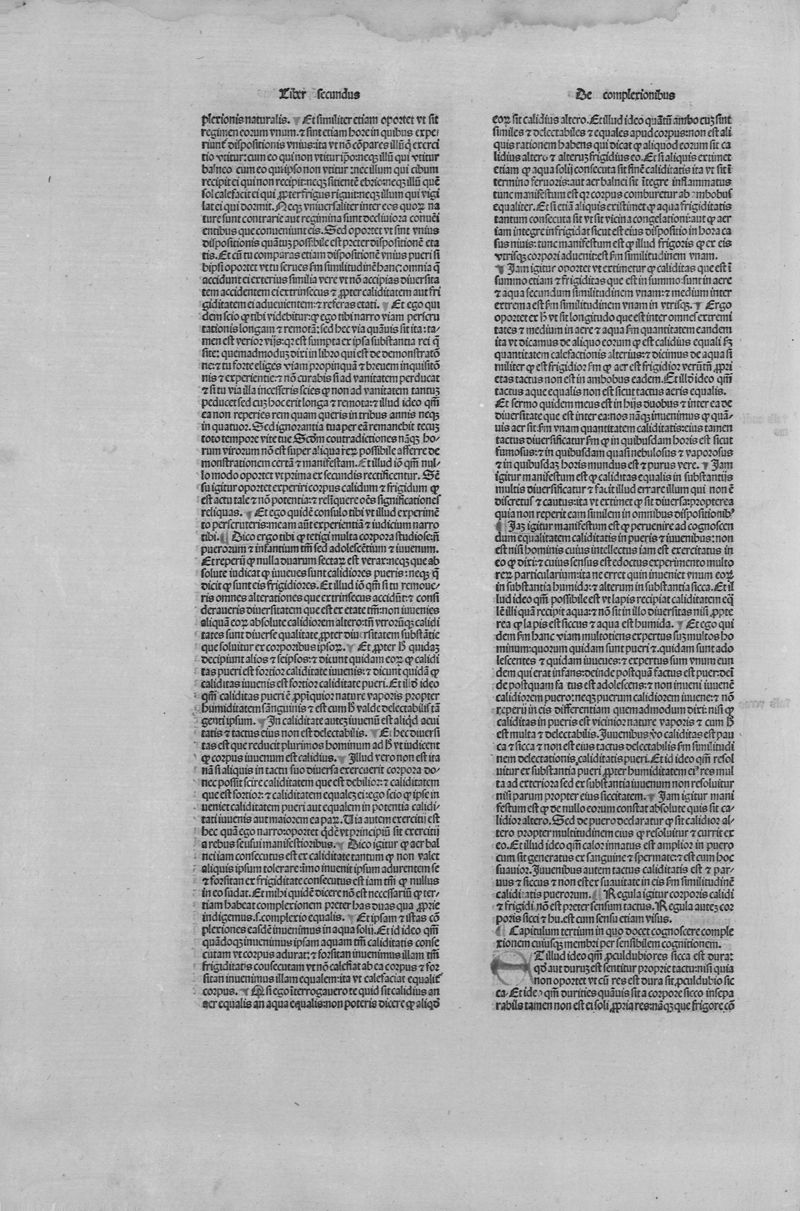 Liber secundus
De complexionibus
plexionis naturalis. Et similiter etiam oportet vt sit
regimen eorum vnum. ⁊ sint etiam hore in quibus expe/
riunt dispositionis vnius: ita vt nō cōpares illū exerci
tio vtitur: cum eo qui non vtitur ip̄o: neqꝫ illū qui vtitur
balneo cum eo qui ipso non vtitur: nec illum qui cibum
recipit ei qui non recipit: neqꝫ sitientē ebrio: neqꝫ illū quē
sol calefacit ei qui ꝓpter frigus riguit: neqꝫ illum qui vigi
lat ei qui dormit. Neqꝫ vniuersaliter inter eos quoꝝ na
ture sunt contrarie aut regimina sunt decliuiora conuei
entibus que conueniunt eis. Sed oportet vt sint vnius
dispositionis quātuꝫ possibile est preter dispositionē eta
tis. Et cū tu comparas etiam dispositionē vnius pueri si
accidunt ei exterius similia vere vt nō accipias diuersita
tem accidentem ei extrinsecus ⁊ ꝓpter caliditatem aut fri
giditatem ei aduenientem: ⁊ referas etati. Et ego qui
dem scio ꝙ tibi videbitur: ꝙ ego tibi narro viam perscru
tationis longam ⁊ remotā: sed hec via quāuis sit ita: ta/
men est verior vijs: ꝙ est sumpta ex ipsa substantia rei q̄
site: quemadmoduꝫ dixi in libro qui est de demonstratō
ne: ⁊ tu forte eliges viam propinquā ⁊ breuem inquisitō
nis ⁊ experientie: ⁊ nō curabis si ad vanitatem perducat
⁊ si tu via illa incesseris scies ꝙ non ad vanitatem tantuꝫ
peducet sed cuꝫ hoc erit longa ⁊ remota: ⁊ illud ideo qm̄
ea non reperies rem quam queris in tribus annis neqꝫ
in quatuor. Sed ignorantia tua per eā remanebit tecuꝫ
toto tempore vite tue Scd̄m contradictiones nāqꝫ ho/
rum virorum nō est super aliqua reꝝ possibile afferre de
monstrationem certā ⁊ manifestam. Et illud iō qm̄ nul/
lo modo oportet vt prima ex secundis rectificentur. Sꝫ
su igitur oportet experiri corpus calidum ⁊ frigidum ꝙ
est actu tale ⁊ nō potentia: ⁊ relinquere oēs significationes
reliquas. Et ego quidē consulo tibi vt illud experimē
to perscruteris: meam aūt experientiā ⁊ iudicium narro
tibi. Dico ergo tibi ꝙ tetigi multa corpora studiose: in
puerorum ⁊ infantium tm̄ sed adolescētium ⁊ iuuenum.
Et reperi ꝙ nulla duarum sectaꝝ est vera: neqꝫ que ab
solute iudicat ꝙ iuuenes sunt calidiores pueris: neqꝫ q̄
dicit ꝙ sunt eis frigidiores. Et illud iō qm̄ si tu remoue/
ris omnes alterationes que extrinsecus accidūt: ⁊ consi
deraueris diuersitatem que est ex etate tm̄: non iuuenies
aliquā eoꝝ absolute calidiorem altero: tn̄ vtrorūqꝫ calidi
tates sunt diuerse qualitate ꝓpter diuersitatem substātie
que soluitur ex corporibus ipsoꝝ. Et ꝓpter h̄ quidaꝫ
decipiunt alios ⁊ seipsos: ⁊ dicunt quidam eoꝝ ꝙ calidi
tas pueri est fortior caliditate iuuenis: ⁊ dicunt quidā ꝙ
caliditas iuuenis est fortior caliditate pueri. Et illō ideo
qm̄ caliditas pueri ē ꝓpīquior nature vaporis propter
humiditatem sanguinis ⁊ est cum h̄ valde delectabilis tā
genti ipsum. In caliditate autē iuuenū est aliqd̄ acui
tatis ⁊ tactus eius non est delectabilis. Et hec diuersi
tas est que reducit plurimos hominum ad h̄ vt iudicent
ꝙ corpus iuuenum est calidius. Illud vero non est ita
nā si aliquis in tactu suo diuersa exercuerit corpora do/
nec possit scire caliditatem que est debilior: ⁊ caliditatem
que est fortior: ⁊ caliditatem equaleꝫ ei: ego scio ꝙ ip̄e in
ueniet caliditatem pueri aut equalem in potentia calidi/
tati iuuenis aut maiorem ea parū. Uia autem exercitij est
hec quā ego narro: oportet qd̄ē vt principiū sit exercitij
a rebus sensui manifestioribus. Dico igitur ꝙ aer bal
nei iam consecutus est ex caliditate tantum ꝙ non valet
aliquis ipsum tolerare: īmo inuenit ipsum adurentem se
⁊ forsitan ex frigiditate consecutus est iam tm̄ ꝙ nullus
in eo sudat. Et mihi quidē dicere nō est necessariū ꝙ ter/
tiam habeat complexionem preter has duas qua ꝓprie
indigemus. s. complexio equalis. Et ipsam ⁊ istas cō
plexiones easdē inuenimus in aqua solij. Et id ideo qm̄
quādoqꝫ inuenimus ipsam aquam tm̄ caliditatis conse
cutam vt corpus adurat: ⁊ forsitan inuenimus illam tm̄
frigiditatis consecutam vt nō calefiat ab ea corpus ⁊ for
sitan inuenimus illam equalem: ita vt calefaciat equaliē
corpus. Ꝙ si ego īterrogauero te quid sit calidius an
aer equalis an aqua equalis: non poteris dicere ꝙ aliqd̄
eoꝝ sit calidius altero. Et illud ideo quātū ambo cuꝫ sint
similes ⁊ delectabiles ⁊ equales apud corpus: non est ali
quis rationem habens qui dicat ꝙ aliquod eorum sit ca
lidius altero ⁊ alteruꝫ frigidius eo. Et si aliquis extimet
etiam ꝙ aqua solij consecuta sit finē caliditatis ita vt sit ī
termino feruoris: aut aer balnei sit ītegre inflammatus
tunc manifestum est ꝙ corpus comburetur ab ambobus
equaliter. Et si etiā aliquis existimet ꝙ aqua frigiditatis
tantum consecuta sit vt sit vicina congelationi: aut ꝙ aer
iam integre infrigidat sicut est eius dispositio in hora ca
sus niuis: tunc manifestum est ꝙ illud frigoris ꝙ ex eis
vtrisqꝫ corpori aduenit: est fm̄ similitudinem vnam.
Iam igitur oportet vt extimetur ꝙ caliditas que est ī
summo etiam ⁊ frigiditas que est in summo: sunt in aere
⁊ aqua secundum similitudinem vnam: ⁊ medium inter
extrema est fm̄ similitudinem vnam in vtrisqꝫ. Ergo
oportet ex h̄ vt sit longitudo que est inter omnes extremi
tates ⁊ medium in aere ⁊ aqua fm̄ quantitatem eandem
ita vt dicamus de aliquo eorum ꝙ est calidius equali fꝫ
quantitatem calefactionis alterius: ⁊ dicimus de aqua si
militer ꝙ est frigidior fm̄ ꝙ aer est frigidior verūtn̄ ꝓpri
etas tactus non est in ambobus eadem. Et illō ideo qm̄
tactus aque equalis non est sicut tactus aeris equalis.
Et sermo quidem meus est in hijs duobus ⁊ inter ea de
diuersitate que est inter ea: nos nāqꝫ inuenimus ꝙ quā/
uis aer sit fm̄ vnam quantitatem caliditatis: eius tamen
tactus diuersificatur fm̄ ꝙ in quibusdam horis est sicut
fumosus: ⁊ in quibusdam quasi nebulosus ⁊ vaporosus
⁊ in quibusdaꝫ horis mundus est ⁊ purus vere. Iam
igitur manifestum est ꝙ caliditas equalis in substantijs
multis diuersificatur ⁊ facit illud errare illum qui non ē
discretus ⁊ cautus: ita vt extimet ꝙ sit diuersa: ⁊ propterea
quia non reperit eam similem in omnibus dispositionibꝰ
Iaꝫ igitur manifestum est ꝙ peruenire ad cognoscen
dum equalitatem caliditatis in pueris ⁊ iuuenibus: non
est nisi hominis cuius intellectus iam est exercitatus in
eo ꝙ dixi: ⁊ cuius sensus est edoctus experimento multo
reꝝ particularium: ita ne erret quin inueniet vnum eoꝝ
in substantia humida: ⁊ alterum in substantia sicca. Et il
lud ideo qm̄ possibile est vt lapis recipiat caliditatem eq̄
lē illi quā recipit aqua: ⁊ nō sit in illo diuersitas nisi ꝓpte
rea ꝙ lapis est siccus ⁊ aqua est humida. Et ego qui
dem fm̄ hanc viam multotiens expertus suꝫ multos ho
minum: quorum quidam sunt pueri ⁊ quidam sunt ado
lescentes ⁊ quidam iuuenes: ⁊ expertus sum vnum eun
dem qui erat infans: deinde postquā factus est puer: dein
de postquam factus est adolescens: ⁊ non inueni iuuenē
calidiorem puero: neqꝫ puerum calidiorem iuuene: ⁊ nō
reperij in eis differentiam quemadmodum dixi: nisi ꝙ
caliditas in pueris est vicinior nature vaporis ⁊ cum h̄
est multa ⁊ delectabilis. Iuuenibus v̄o caliditas est pau
ca ⁊ sicca ⁊ non est eius tactus delectabilis fm̄ similitudi
nem delectationis caliditatis pueri. Et id ideo qm̄ resol
uitur ex substantia pueri ꝓpter humiditatem eiꝰ res mul
ta ad exteriora sed ex substantia iuuenum non resoluitur
nisi parum propter eius siccitatem. Iam igitur mani
festum est ꝙ de nullo eorum constat absolute quis sit ca/
lidior altero. Sed de puero declaratur ꝙ sit calidior al/
tero propter multitudinem eius ꝙ resoluitur ⁊ currit ex
eo. Et illud ideo qm̄ calor innatus est amplior in puero
cum sit generatus ex sanguine ⁊ spermate: ⁊ est cum hoc
suauior. Iuuenibus autem tactus caliditatis est ⁊ par/
uus ⁊ siccus ⁊ non est ex suauitate in eis fm̄ similitudinē
caliditatis puerorum. Regula igitur corporis calidi
⁊ frigidi. nō est preter sensum tactus. Regula auteꝫ cor
poris sicci ⁊ hu. est cum sensu etiam visus.
Capitulum tertium in quo docet cognoscere comple
xionem cuiusqꝫ membri per sensibilem cognitionem.
Et illud ideo qm̄ ꝓculdubio res sicca est dura:
qd̄ aut duruꝫ est sentitur proprie tactu: nisi quia
non oportet vt cū res est dura sit ꝓculdubio sic
ca. Et ideo qm̄ durities quāuis sit a corpore sicco insepa
rabilis tamen non est ei soli ꝓpria res: nāqꝫ que frigore cō